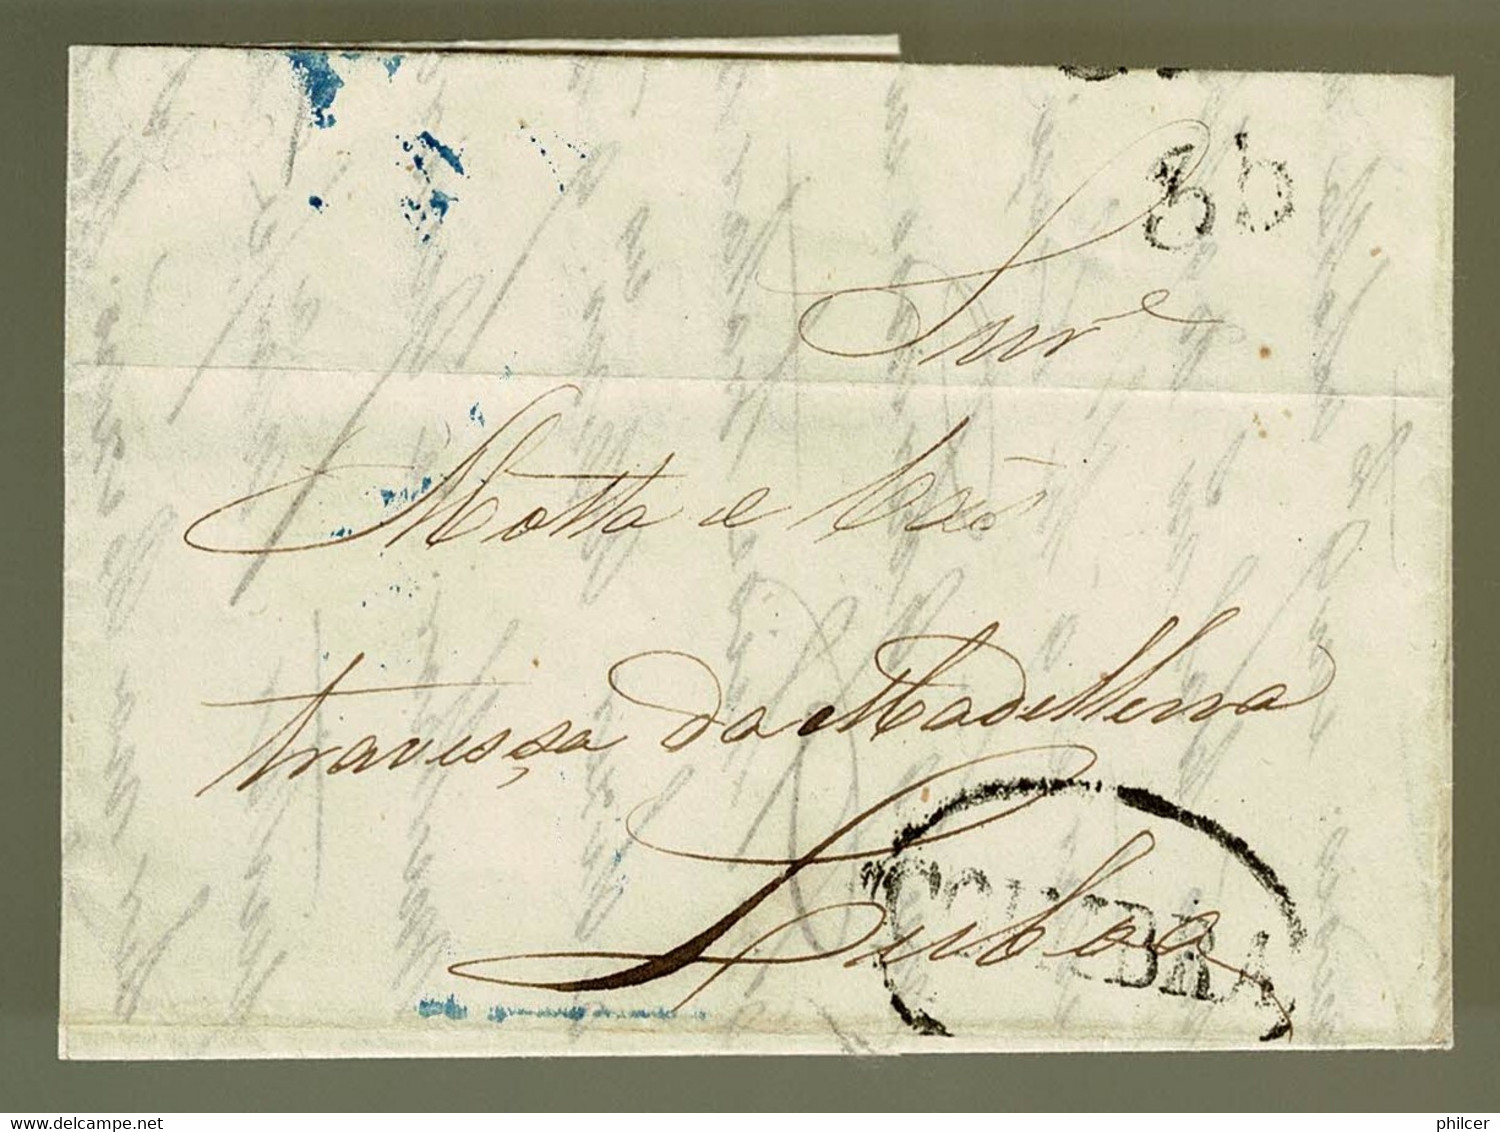 Snr.ˢ
Motta e
travessa da Madallena
Lisboa
COIMBRA
www.delcampe.net
philcer